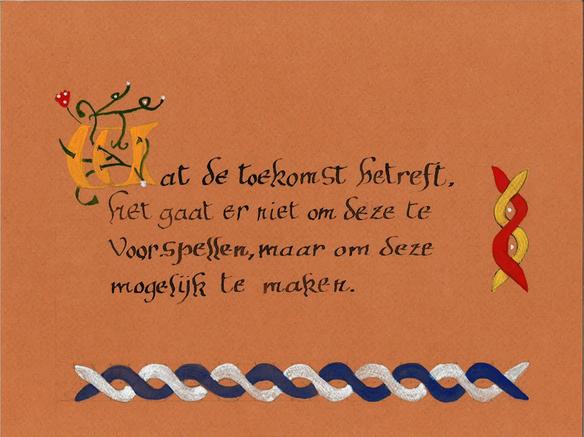 Wat de toekomst betreft,
het gaat er niet om deze te
voorspellen, maar om deze
mogelijk te maken.